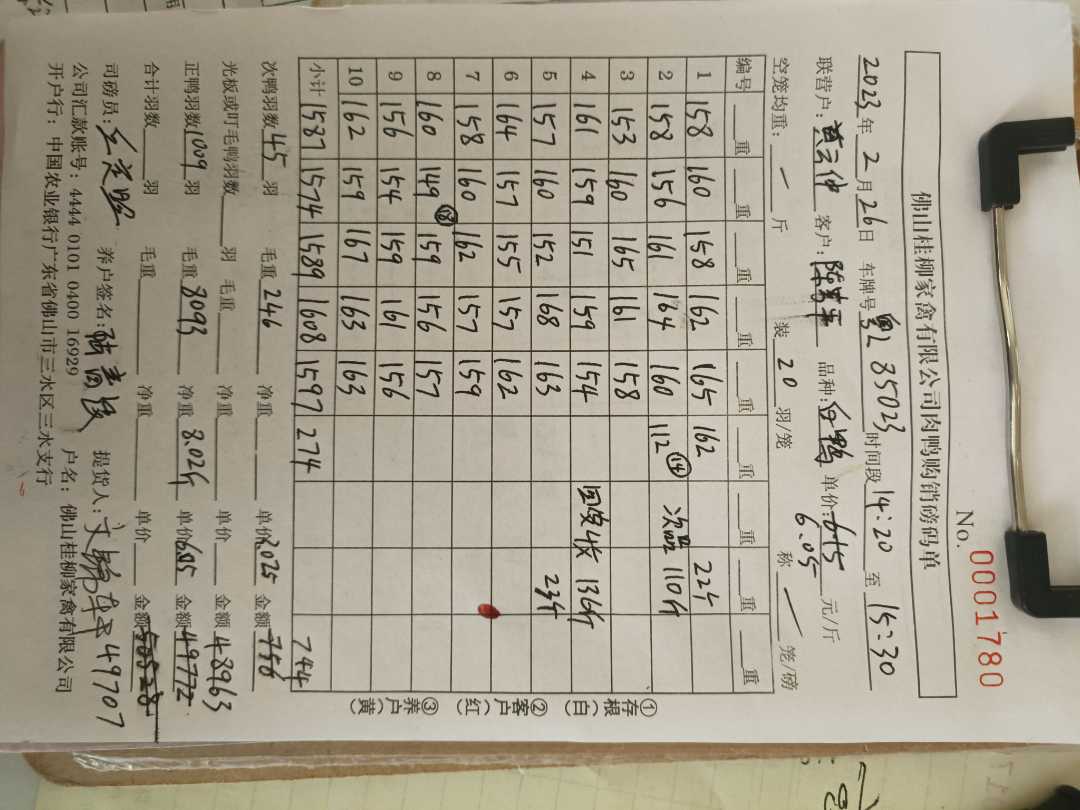 佛山桂柳家禽有限公司肉鸭购销磅码单
No. 0001780
2023年2月26日 车牌号 粤L 85023 时间段 14:20 至 15:30
联营户: 黄云仲 客户: 品种: 白鸭 单价: 615 6.05 元/斤
空笼均重: 一 斤 装 20 羽/笼 称 笼/磅
编号 重 重 重 重 重 重 重 重 重
1 158 160 158 162 165 162 22斤
2 158 156 161 164 160 112 ⑭ 次鸭 110斤
3 153 160 165 161 158
4 161 159 151 159 154 回收 136斤
5 157 160 152 168 163 23斤
6 164 157 155 157 162
7 158 160 162 157 159
8 160 149 ⑱ 159 156 157
9 156 154 159 161 156
10 162 159 167 163 163
小计 1587 1574 1589 1608 1597 274 744
次鸭羽数 45 羽 毛重 246 净重 单价 3.025 金额 756
光板或叮毛鸭羽数 羽 毛重 净重 单价 金额 48963
正鸭羽数 1009 羽 毛重 8093 净重 8.02斤 单价 6.05 金额 49772
合计羽数 羽 毛重 净重 单价 金额 50528
司磅员: 养户签名: 提货人: 49707
公司汇款账号: 4444 0101 0400 16929 户名: 佛山桂柳家禽有限公司
开户行: 中国农业银行广东省佛山市三水区三水支行
①存根(白) ②客户(红) ③养户(黄)